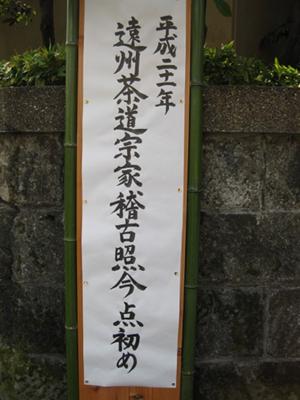 平成二十一年
遠州茶道宗家稽古照今点初め